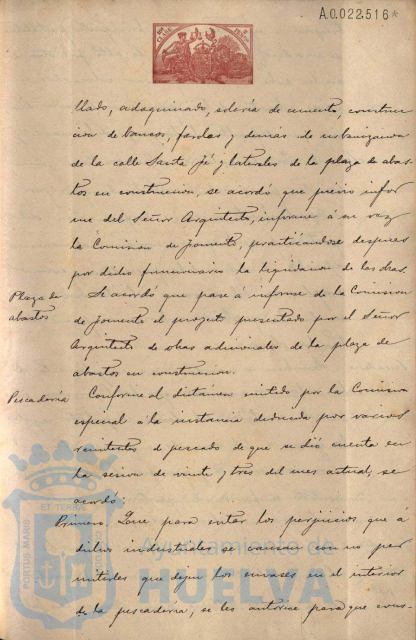 A.0.022.516*
llado, adoquinado, solería de cemento, construc
cion de bancos, farolas y demás de urbanizacion
de la calle Santa Fé y laterales de la plaza de abas
tos en construccion, se acordó que previo infor
me del Señor Arquitecto, informe á su vez
la Comision de fomento, practicandose despues
por dichos funcionarios la liquidacion de las obras.
Plaza de
abastos
Se acordó que pase á informe de la Comision
de fomento el proyecto presentado por el Señor
Arquitecto de obras adicionales de la plaza de
abastos en construccion.
Pescadería
Conforme al dictámen emitido por la Comision
especial á la instancia deducida por varios
remitentes de pescado de que se dió cuenta en
la sesion de veinte y tres del mes actual, se
acordó:
Primero. Que para evitar los perjuicios que á
dichos industriales se causan con no per
mitirles que dejen los envases en el interior
de la pescadería, se les autorice para que cons-
PORTUS MARIS ET TERRE
Ayuntamiento de
HUELVA